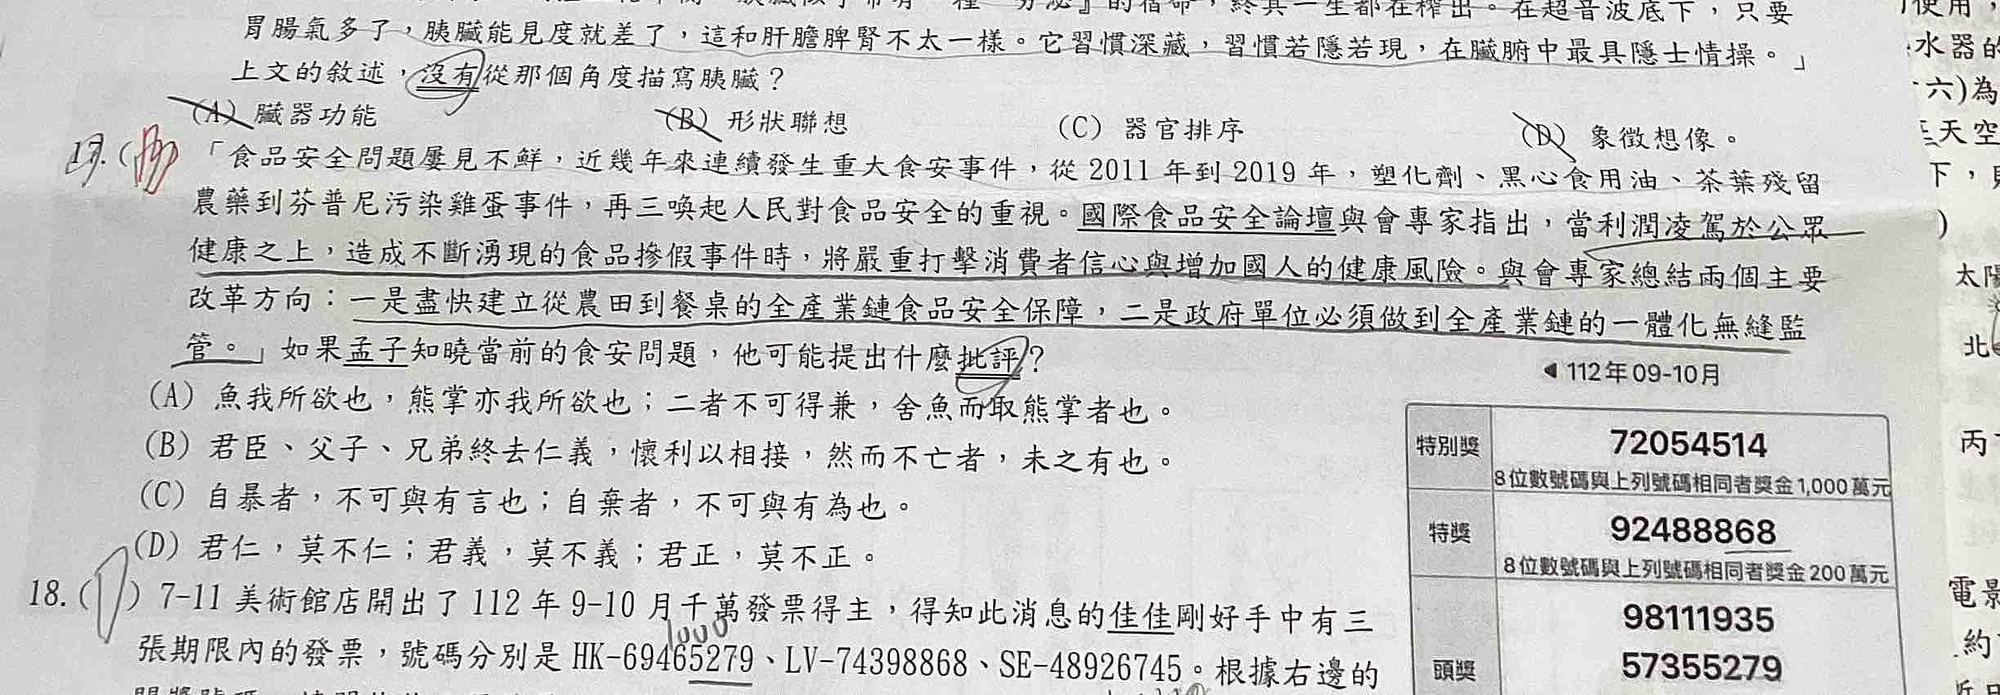 的宿命，終其一生都在榨出。在超音波底下，只要
胃腸氣多了，胰臟能見度就差了，這和肝膽脾腎不太一樣。它習慣深藏，習慣若隱若現，在臟腑中最具隱士情操。」
上文的敘述，沒有從那個角度描寫胰臟？
(A) 臟器功能 (B) 形狀聯想 (C) 器官排序 (D) 象徵想像。
17.( 「食品安全問題屢見不鮮，近幾年來連續發生重大食安事件，從 2011 年到 2019 年，塑化劑、黑心食用油、茶葉殘留
農藥到芬普尼污染雞蛋事件，再三喚起人民對食品安全的重視。國際食品安全論壇與會專家指出，當利潤凌駕於公眾
健康之上，造成不斷湧現的食品摻假事件時，將嚴重打擊消費者信心與增加國人的健康風險。與會專家總結兩個主要
改革方向：一是盡快建立從農田到餐桌的全產業鏈食品安全保障，二是政府單位必須做到全產業鏈的一體化無縫監
管。」如果孟子知曉當前的食安問題，他可能提出什麼批評？
(A) 魚我所欲也，熊掌亦我所欲也；二者不可得兼，舍魚而取熊掌者也。
(B) 君臣、父子、兄弟終去仁義，懷利以相接，然而不亡者，未之有也。
(C) 自暴者，不可與有言也；自棄者，不可與有為也。
(D) 君仁，莫不仁；君義，莫不義；君正，莫不正。
18.( ) 7-11 美術館店開出了 112 年 9-10 月千萬發票得主，得知此消息的佳佳剛好手中有三
1000
張期限內的發票，號碼分別是 HK-69465279、LV-74398868、SE-48926745。根據右邊的
◀ 112年 09-10月
特別獎 72054514
8位數號碼與上列號碼相同者獎金1,000萬元
特獎 92488868
8位數號碼與上列號碼相同者獎金200萬元
98111935
頭獎 57355279
使用，
水器的
六)為
天空
下，
)
太陽
北
丙
電影
約